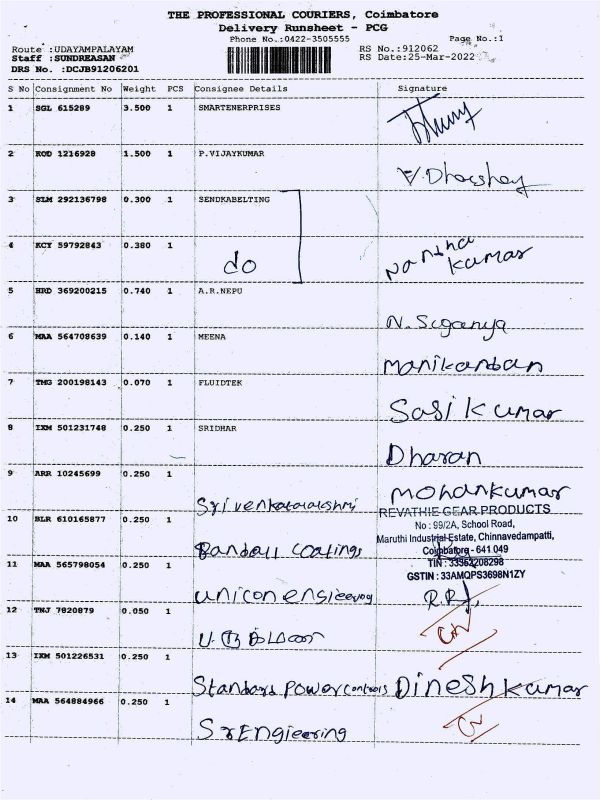 THE PROFESSIONAL COURIERS, Coimbatore
Delivery Runsheet - PCG
Phone No.:0422-3505555 Page No.:1
Route :UDAYAMPALAYAM RS No.:912062
Staff :SUNDREASAN RS Date:25-Mar-2022
DRS No. :DCJB91206201
S No Consignment No Weight PCS Consignee Details Signature
1 SGL 615289 3.500 1 SMARTENERPRISES
2 KOD 1216928 1.500 1 P.VIJAYKUMAR
V.Dharshay
3 SLM 292136798 0.300 1 SENDKABELTING
4 KCY 59792843 0.380 1
do Nantha kumar
5 HRD 369200215 0.740 1 A.R.NEPU
N. Suganya
6 MAA 564708639 0.140 1 MEENA
manikandan
7 TMG 200198143 0.070 1 FLUIDTEK
Sasi kumar
8 IXM 501231748 0.250 1 SRIDHAR
Dharan
9 ARR 10245699 0.250 1
Srivenkatalakshmi mohankumar
REVATHIE GEAR PRODUCTS
10 BLR 610165877 0.250 1
No : 99/2A, School Road,
Maruthi Industrial Estate, Chinnavedampatti,
Coimbatore - 641 049
Bandall coatings
11 MAA 565798054 0.250 1
TIN : 33562208298
GSTIN : 33AMQPS3698N1ZY
unicon ensieering R.R
12 TNJ 7820879 0.050 1
13 IXM 501226531 0.250 1
Standard power controls Dinesh kumar
14 MAA 564884966 0.250 1
Sr Engieering